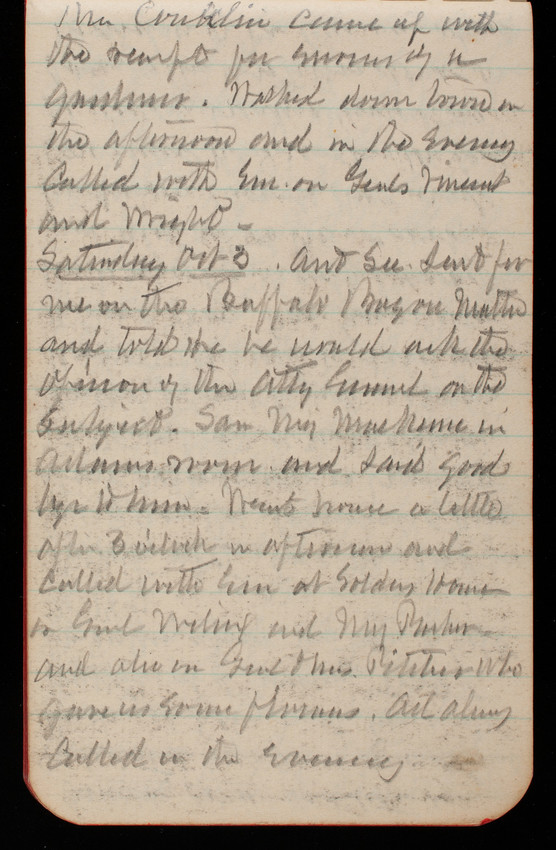 Mrs Conklin came up with
the receipt for
Walked down town in
the afternoon and in the evening
Called with Em. on Genls Vincent
and Wright -
Saturday Oct 3. Asst Sec. sent for
me on the Buffalo Bayou Matter
and told me he would ask the
opinion of the Atty General on the
Subject. Saw Maj MacKenzie in
Adams room and said good
bye to him. Went home a little
after 3 o'clock in afternoon and
Called with Em at Soldiers Home
on Genl Willcox and Maj Parker -
and also on Genl & Mrs. Pitcher who
gave us some flowers.
Called in the evening